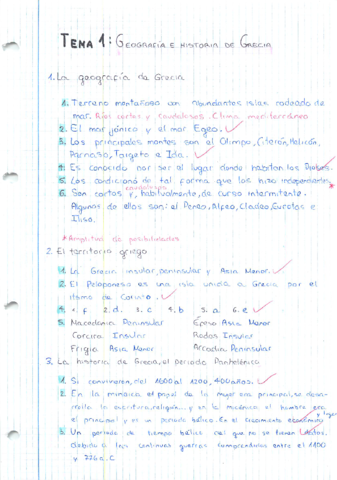 TEMA 1: GEOGRAFÍA E HISTORIA DE GRECIA
1. La geografía de Grecia
1. Terreno montañoso con abundantes islas rodeado de
mar. Ríos cortos y caudalosos. Clima mediterráneo
2. El mar jónico y el mar Egeo.
3. Los principales montes son el Olimpo, Citerón, Helicón,
Parnaso, Taigeto e Ida.
4. Es conocido por ser el lugar donde habitan los Dioses.
5. Los condicionó de tal forma que los hizo independientes.
6. Son cortos y caudalosos, habitualmente, de curso intermitente.
Algunos de ellos son: el Peneo, Alfeo, Cladeo, Eurotas e
Iliso.
*Amplitud de posibilidades
2. El territorio griego
1. La Grecia insular, peninsular y Asia Menor.
2. El Peloponeso es una isla unida a Grecia por el
itsmo de Corinto.
4. 1. f 2. d. 3. c 4. b 5. a. 6. e
5. Macedonia Peninsular Éfeso Asia Menor
Corcira Insular Rodas Insular
Frigia Asia Menor Arcadia Peninsular
3. La historia de Grecia, el periodo Prehelénico
1. Si convivieron, del 1600 al 1200, 400 años.
2. En la minoica el papel de la mujer era principal, se desa-
rrolla la escritura, religión... y en la micénica el hombre era
el principal y es un periodo bélico. En el crecimiento económico y lugar
3. Un periodo de tiempo bélico del que no se tienen datos.
debido a las continuas guerras comprendidas entre el 1100
y 776 a. C